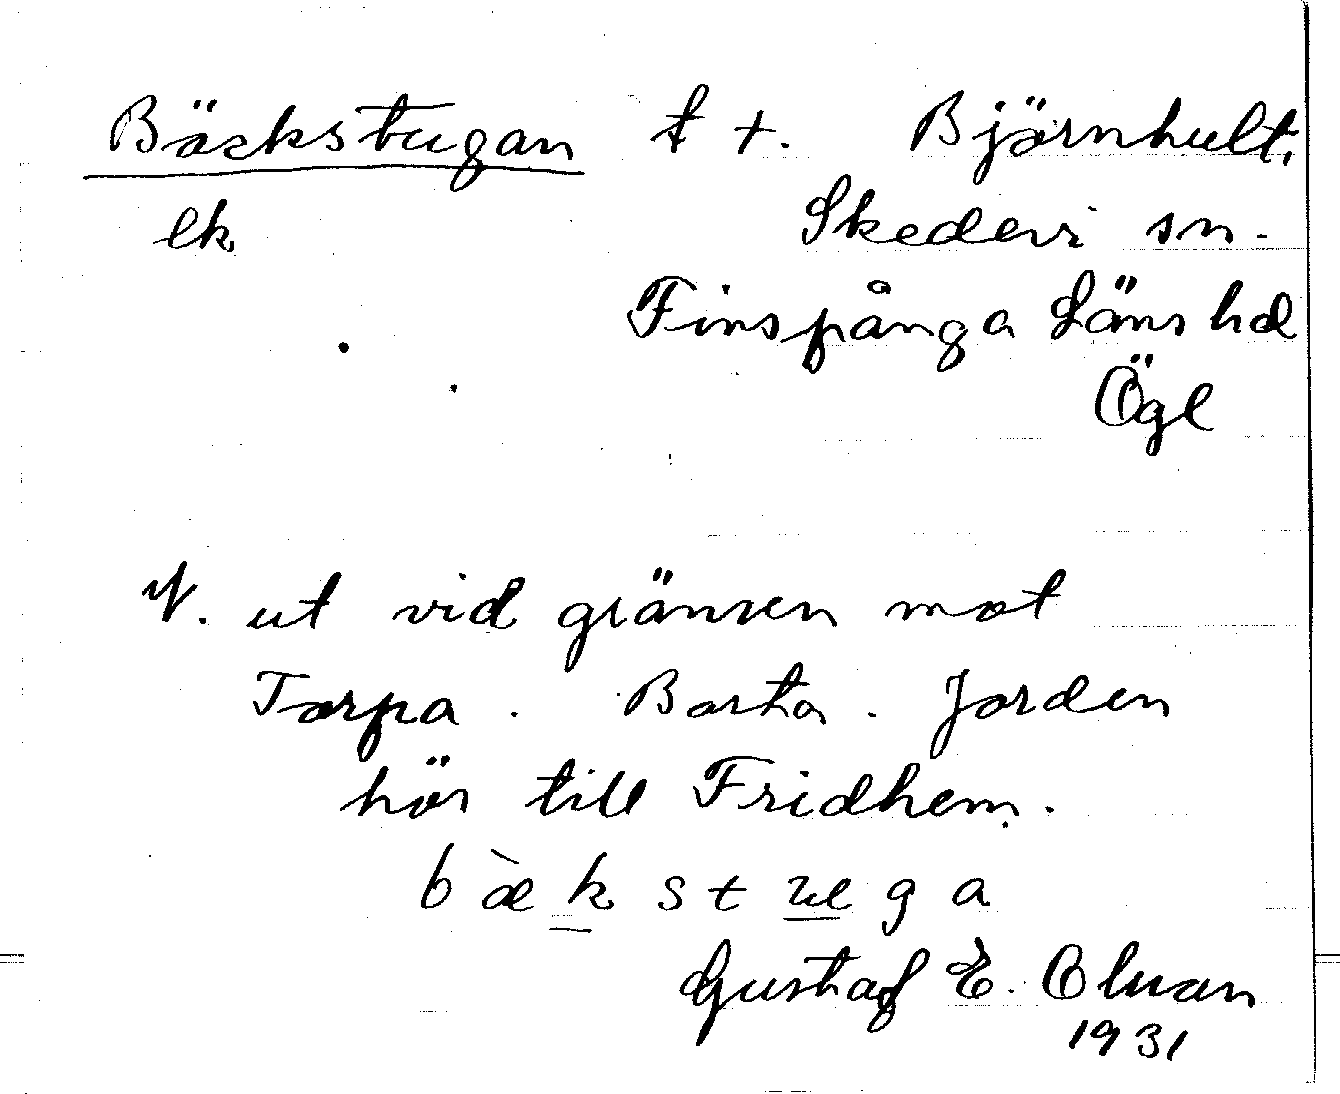 Bäckstugan t +. Björnhult,
lk Skedevi sn.
Finspånga Läns hd
Ögl
N. ut vid gränsen mot
Torpa. Borta. Jorden
hör till Fridhem.
b æ̀ k s t ue g a
Gustaf E. Olsson
1931